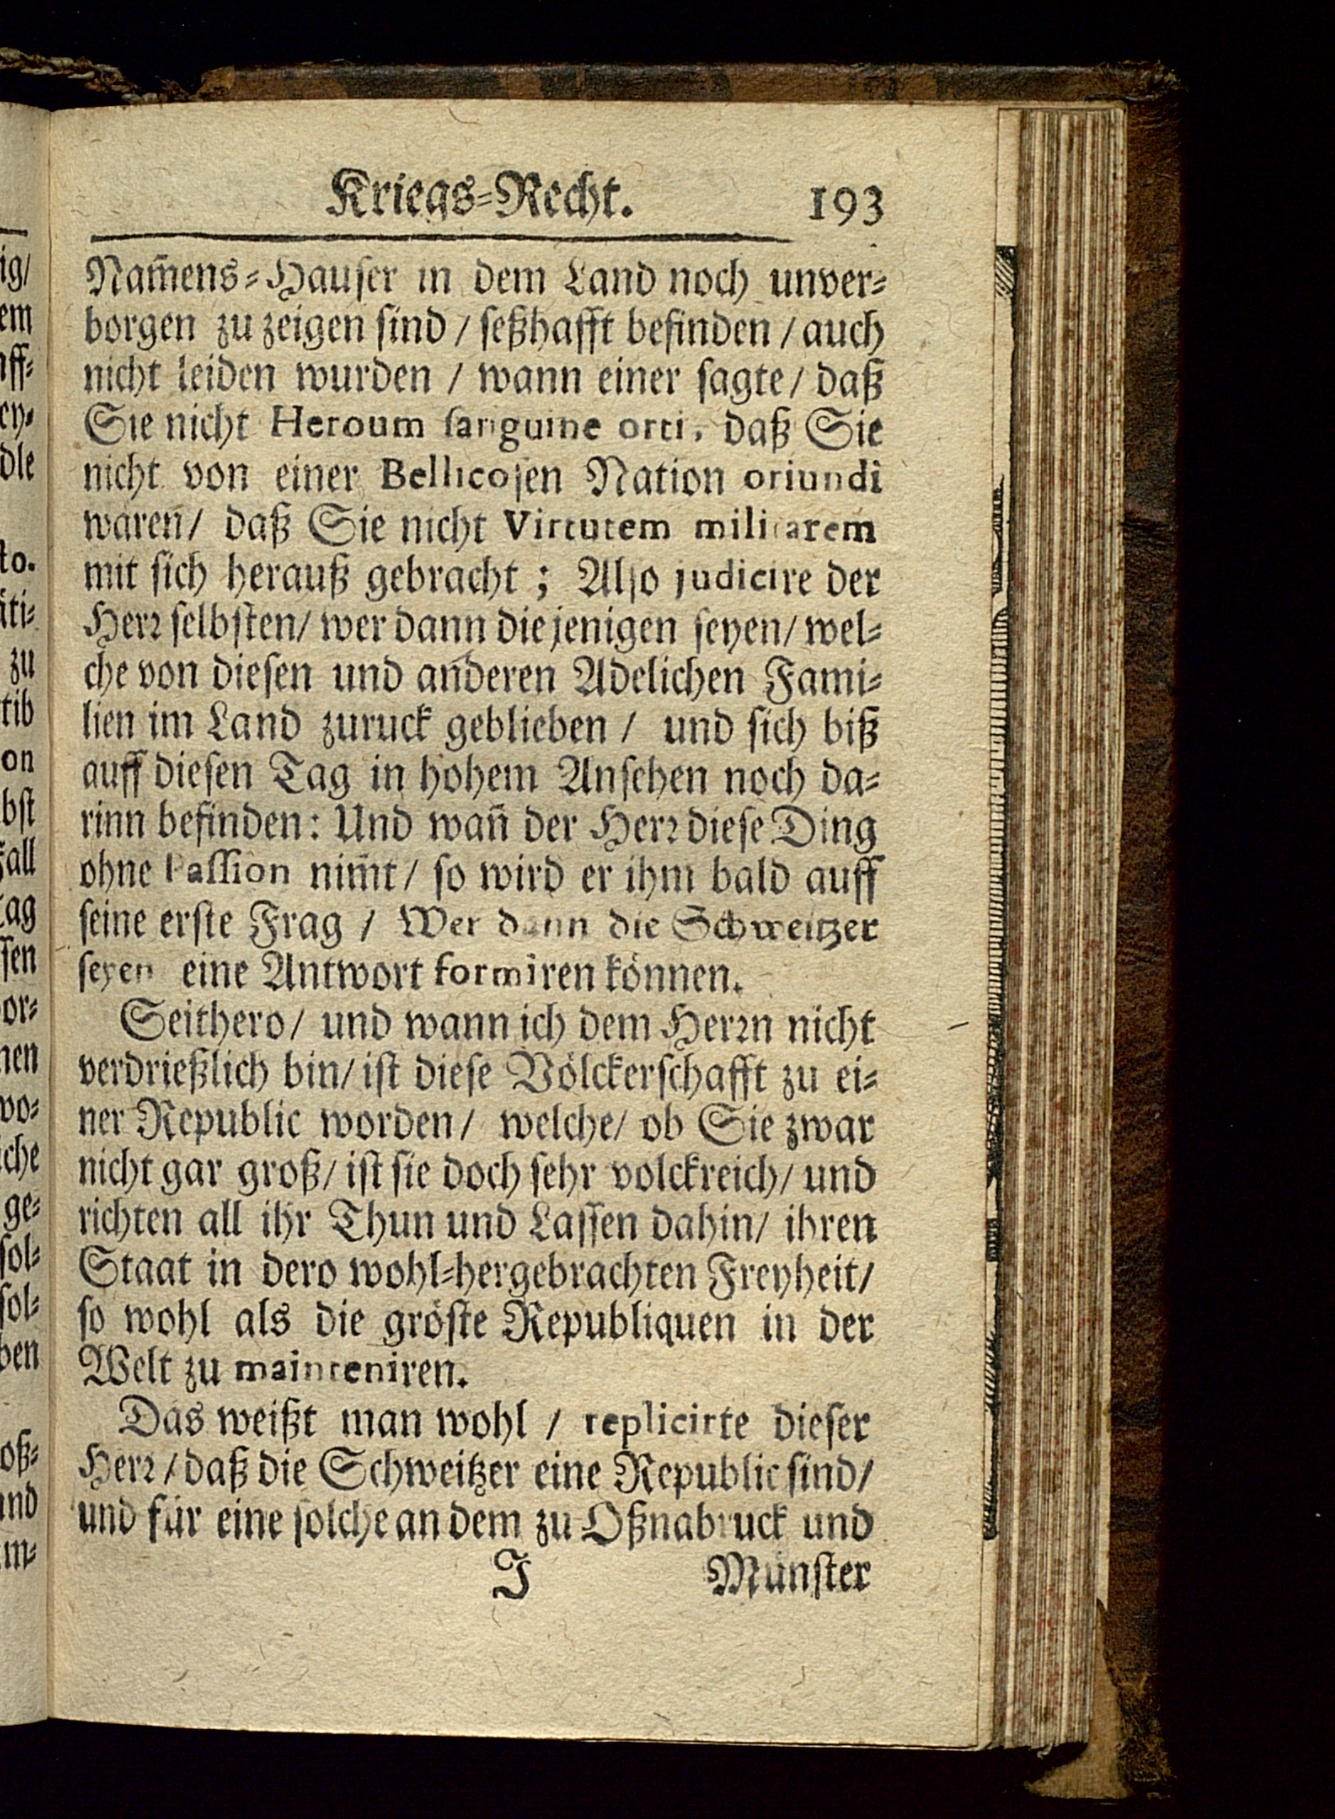 Kriegs-Recht. 193
Nam̃ens-Hauser in dem Land noch unver-
borgen zu zeigen sind / seßhafft befinden / auch
nicht leiden wurden / wann einer sagte / daß
Sie nicht Heroum sanguine orti, daß Sie
nicht von einer Bellicosen Nation oriundi
waren / daß Sie nicht Virtutem militarem
mit sich herauß gebracht ; Also judicire der
Herr selbsten / wer dann diejenigen seyen / wel-
che von diesen und anderen Adelichen Fami-
lien im Land zuruck geblieben / und sich biß
auff diesen Tag in hohem Ansehen noch da-
rinn befinden : Und wañ der Herr diese Ding
ohne Passion nim̃t / so wird er ihm bald auff
seine erste Frag / Wer dann die Schweitzer
seyen eine Antwort formiren können.
Seithero / und wann ich dem Herrn nicht
verdrießlich bin / ist diese Völckerschafft zu ei-
ner Republic worden / welche / ob Sie zwar
nicht gar groß / ist sie doch sehr volckreich / und
richten all ihr Thun und Lassen dahin / ihren
Staat in dero wohl-hergebrachten Freyheit /
so wohl als die gröste Republiquen in der
Welt zu mainteniren.
Das weißt man wohl / replicirte dieser
Herr / daß die Schweitzer eine Republic sind /
und für eine solche an dem zu Oßnabruck und
J Münster